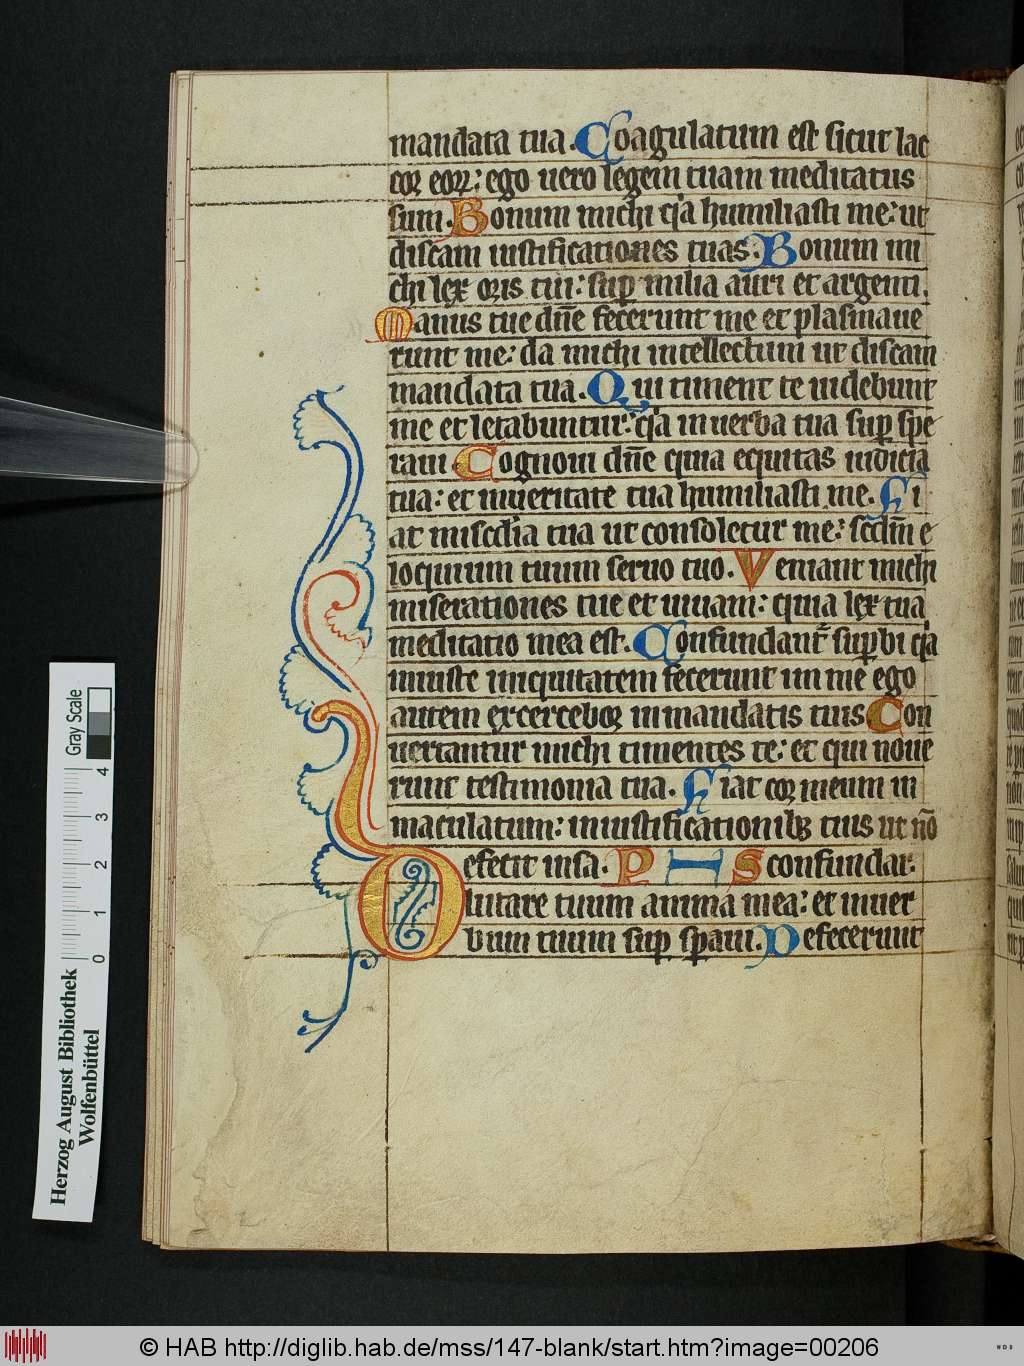 mandata tua. Coagulatum est sicut lac
cor eorꝝ: ego uero legem tuam meditatus
sum. Bonum michi qꝛa humiliasti me: ut
discam iustificationes tuas. Bonum mi
chi lex oris tui: suꝑ milia auri et argenti.
Manus tue dn̄e fecerunt me et plasmaue
runt me: da michi intellectum ut discam
mandata tua. Qui timent te uidebunt
me et letabuntur: qꝛa in uerba tua suꝑ spe
raui Cognoui dn̄e quia equitas iudicia
tua: et in ueritate tua humiliasti me. Fi
at miscdia tua ut consoletur me: scdm̄ e
loquium tuum seruo tuo. Veniant michi
miserationes tue et uiuam: quia lex tua
meditatio mea est. Confundant᷑ suꝑbi qꝛa
iniuste iniquitatem fecerunt in me ego
autem exercebor in mandatis tuis Con
uertantur michi timentes te: et qui noue
runt testimonia tua. Fiat cor meum in
maculatum: in iustificationibꝫ tuis ut nō
efecit in sa. PHS confundar.
D lutare tuum anima mea: et in uer
bum tuum suꝑ sꝑaui. Defecerunt
Herzog August Bibliothek
Wolfenbüttel
0 1 2 3 4
Gray Scale
© HAB http://diglib.hab.de/mss/147-blank/start.htm?image=00206